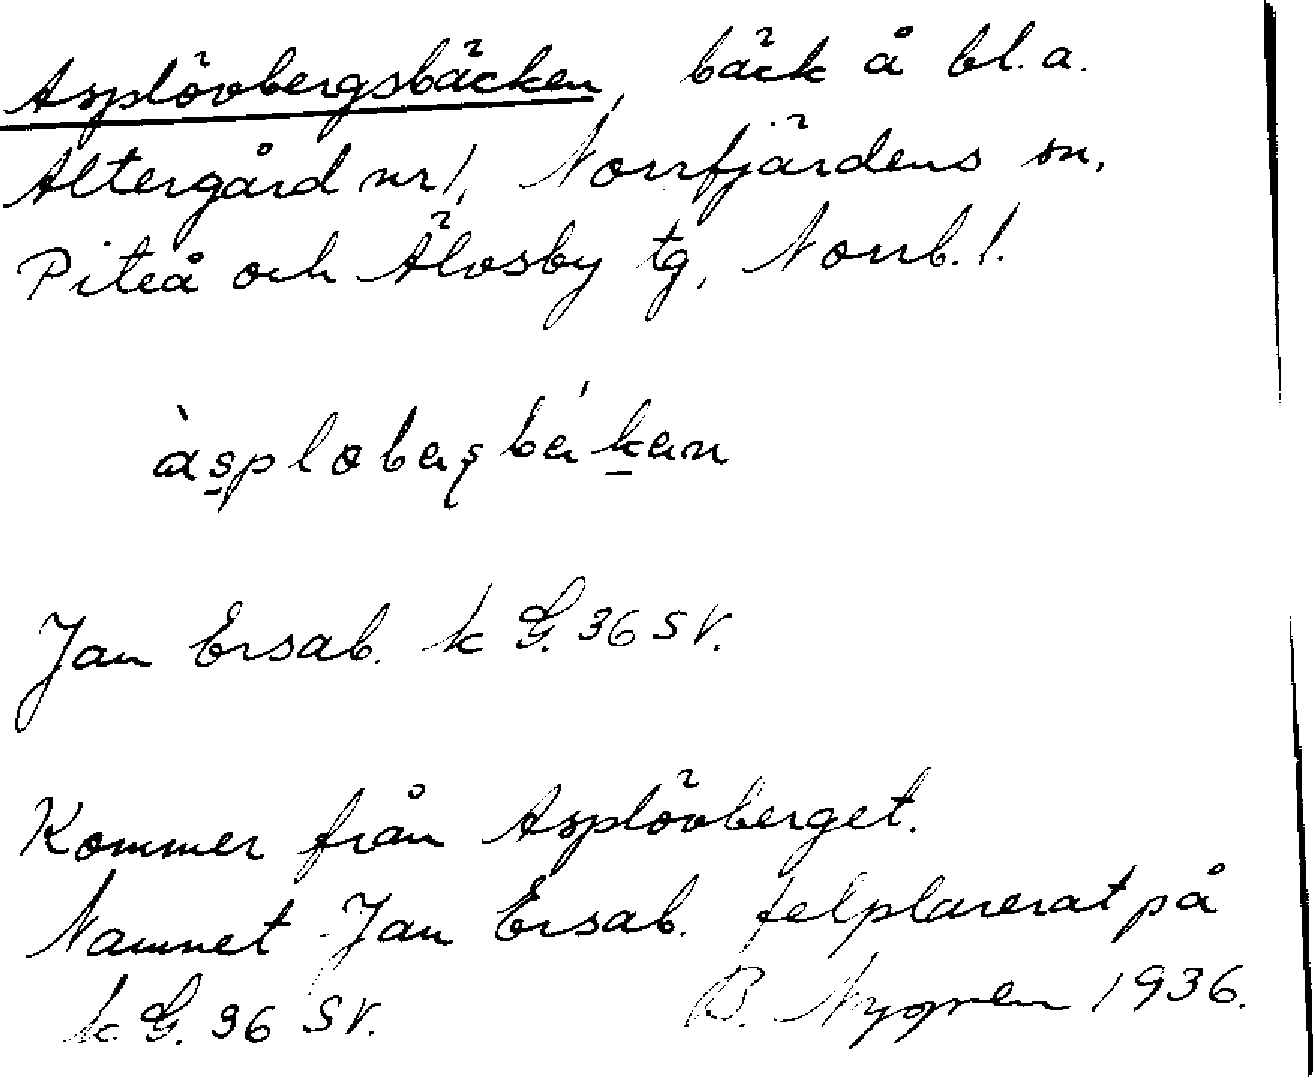 Asplövbergsbäcken, bäck å bl.a.
Altergård nr 1, Norrfjärdens sn,
Piteå och Älvsby tg, Norrb. l.
Jan Ersab. k G. 36 SV.
Kommer från Asplövberget.
Namnet Jan Ersab. felplacerat på
k G. 36 SV. B. Nygren 1936.